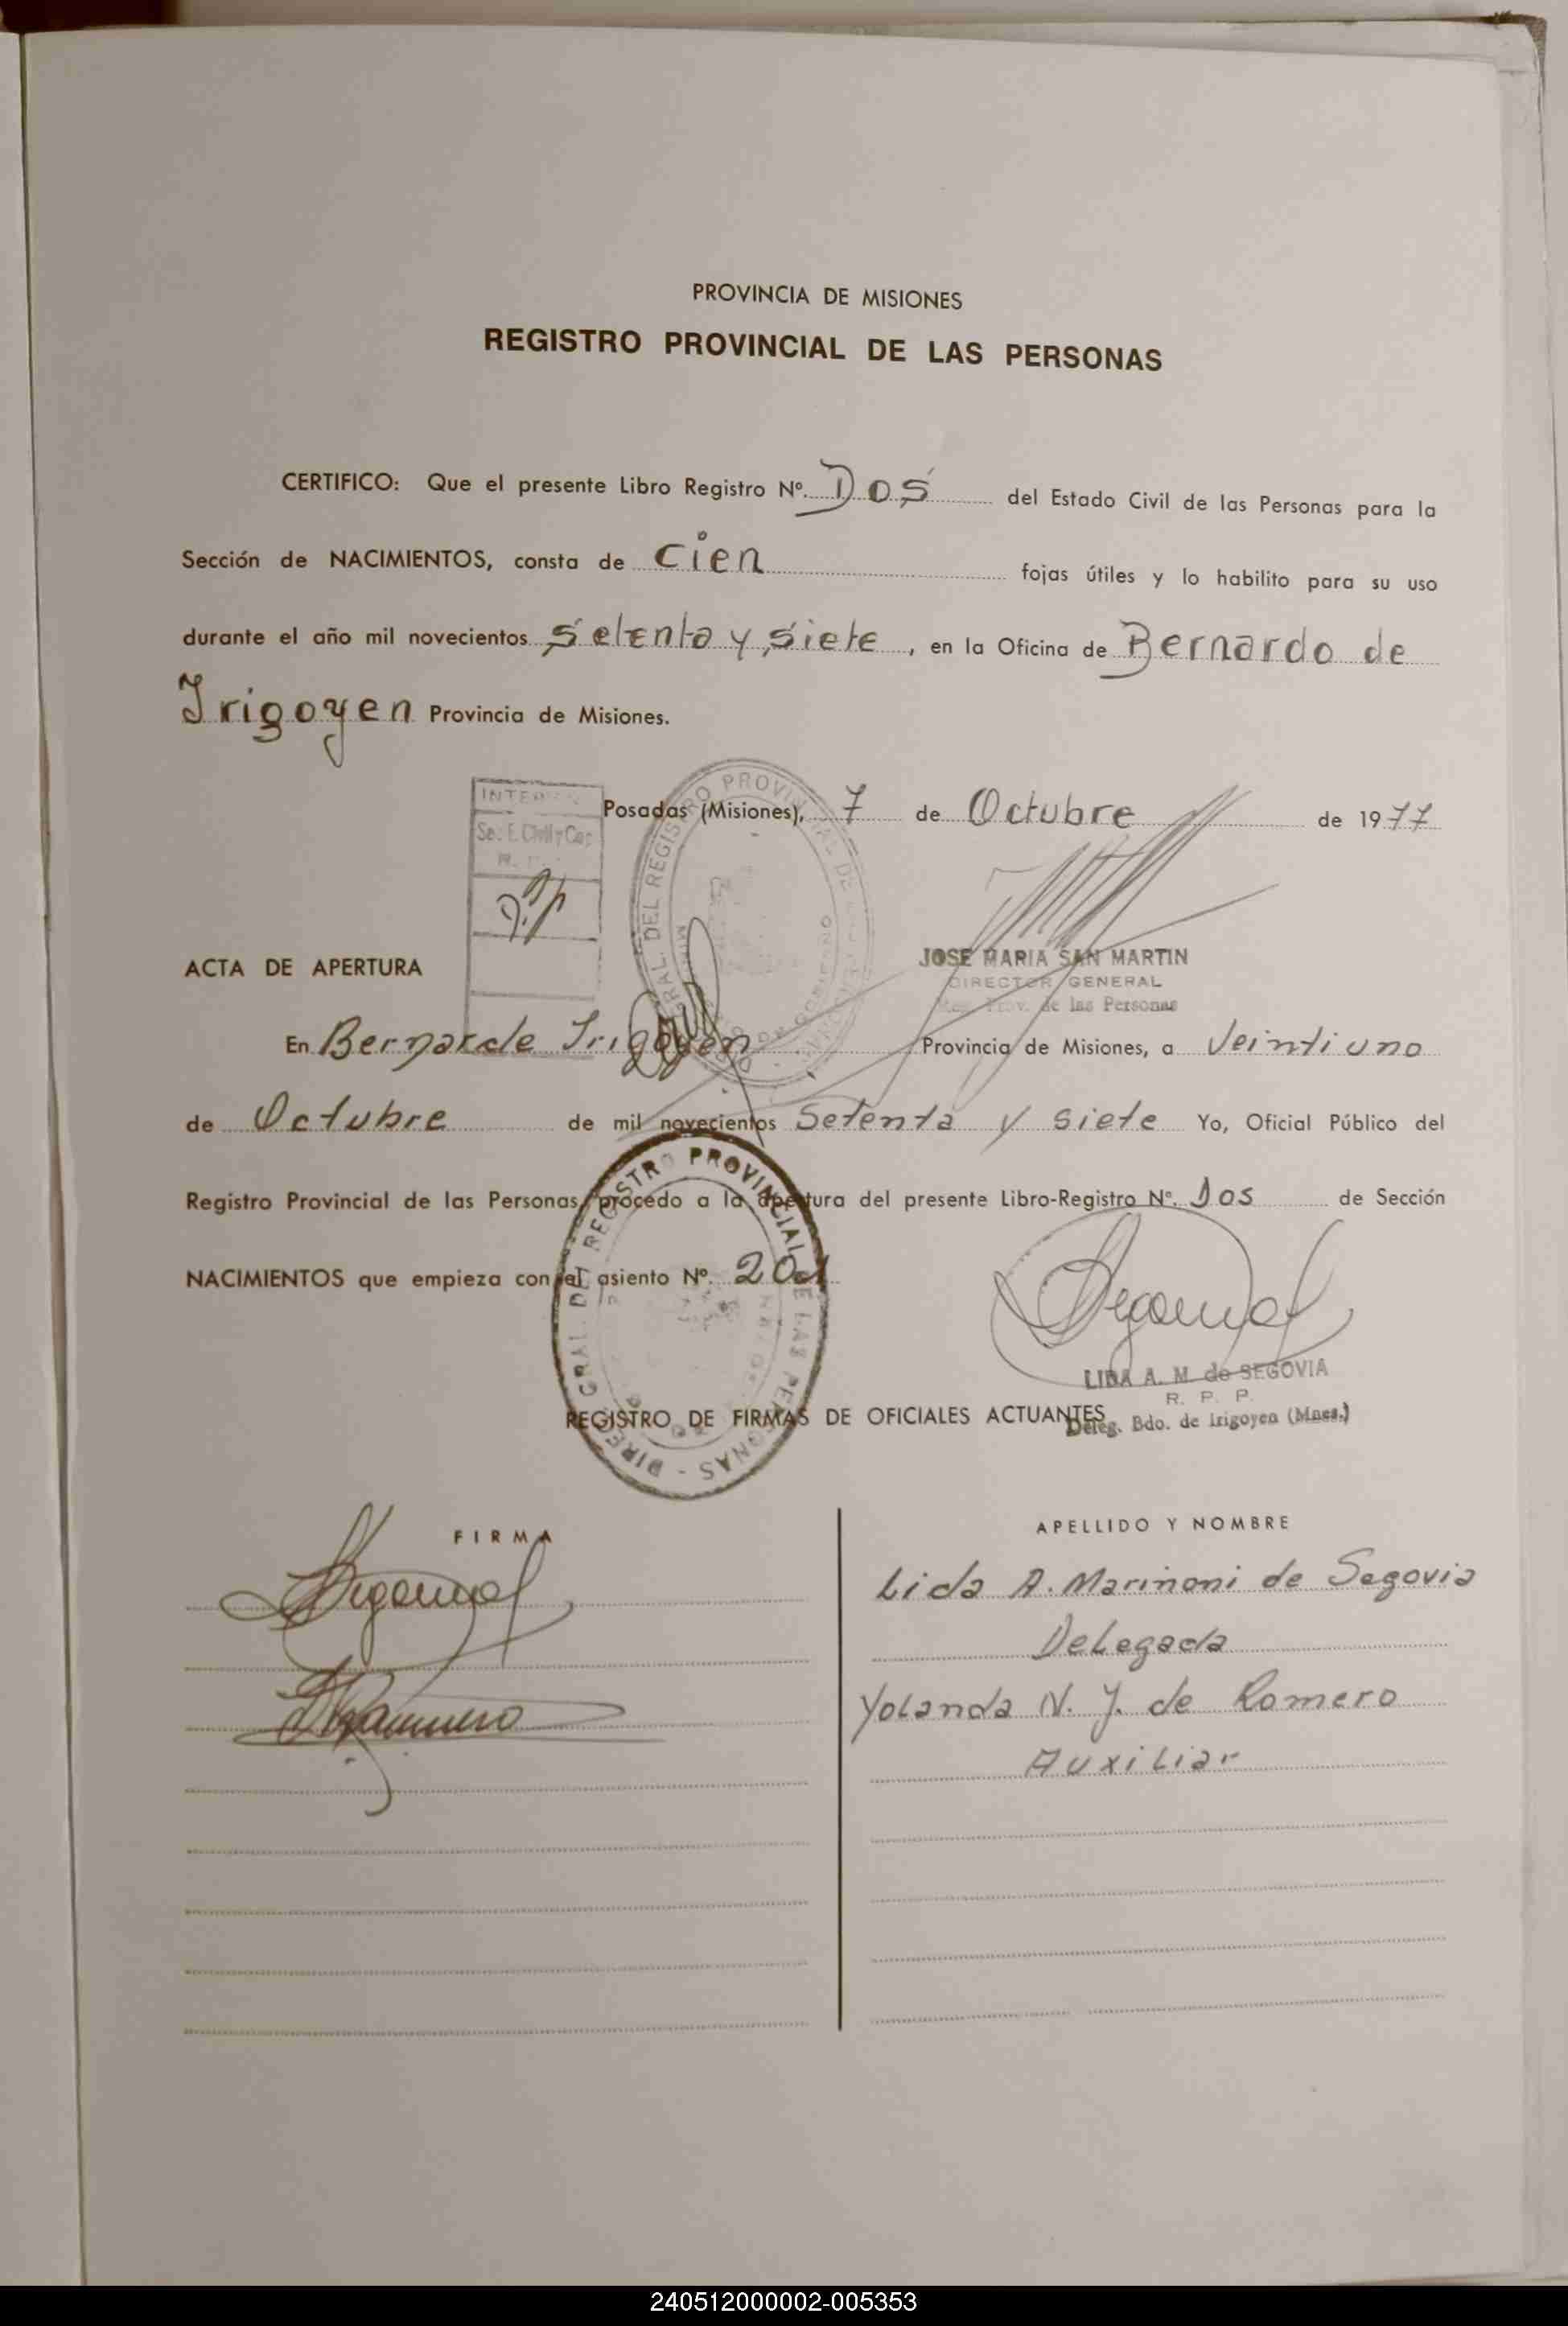 PROVINCIA DE MISIONES
REGISTRO PROVINCIAL DE LAS PERSONAS
CERTIFICO: Que el presente Libro Registro Nº. Dos del Estado Civil de las Personas para la
Sección de NACIMIENTOS, consta de cien fojas útiles y lo habilito para su uso
durante el año mil novecientos setenta y siete, en la Oficina de Bernardo de
Irigoyen Provincia de Misiones.
Posadas (Misiones), 7 de Octubre de 1977
Se. E. Civil y Cap
JOSE MARIA SAN MARTIN
DIRECTOR GENERAL
Reg. Prov. de las Personas
ACTA DE APERTURA
En Bernardo Irigoyen Provincia de Misiones, a Veintiuno
de Octubre de mil novecientos Setenta y siete Yo, Oficial Público del
Registro Provincial de las Personas, procedo a la apertura del presente Libro-Registro Nº. Dos de Sección
NACIMIENTOS que empieza con el asiento Nº. 201
DIREC. GRAL. DEL REGISTRO PROVINCIAL DE LAS PERSONAS
LIDA A. M. de SEGOVIA
R. P. P.
Deleg. Bdo. de Irigoyen (Mnes.)
REGISTRO DE FIRMAS DE OFICIALES ACTUANTES
FIRMA APELLIDO Y NOMBRE
Lida A. Marinoni de Segovia
Delegada
Yolanda N. J. de Romero
Auxiliar
240512000002-005353